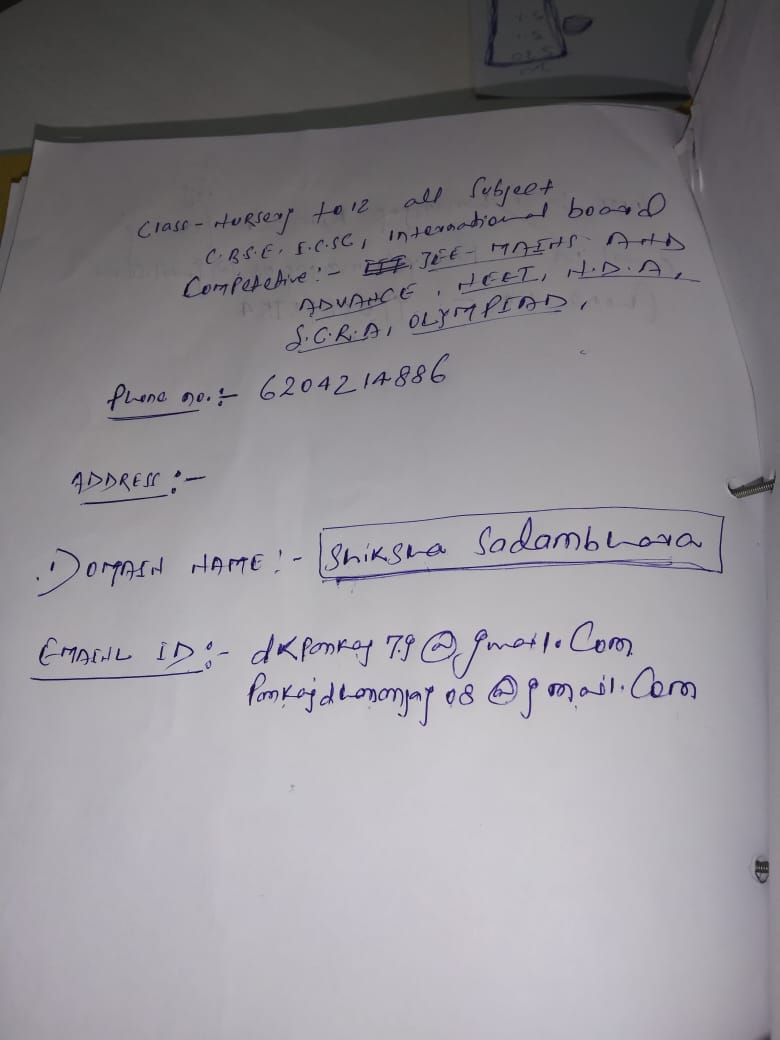 Class - Nursery to 12 all Subject
C.B.S.E, I.C.S.E, International board
Competetive :- JEE - MAINS AND
ADVANCE, NEET, N.D.A,
S.C.R.A, OLYMPIAD,
Phone no. :- 6204214886
ADDRESS :-
DOMAIN NAME :- Shiksha Sadambhava
EMAINL ID :- dkpankaj79@gmail.com
Pankajdhananjay08@gmail.com